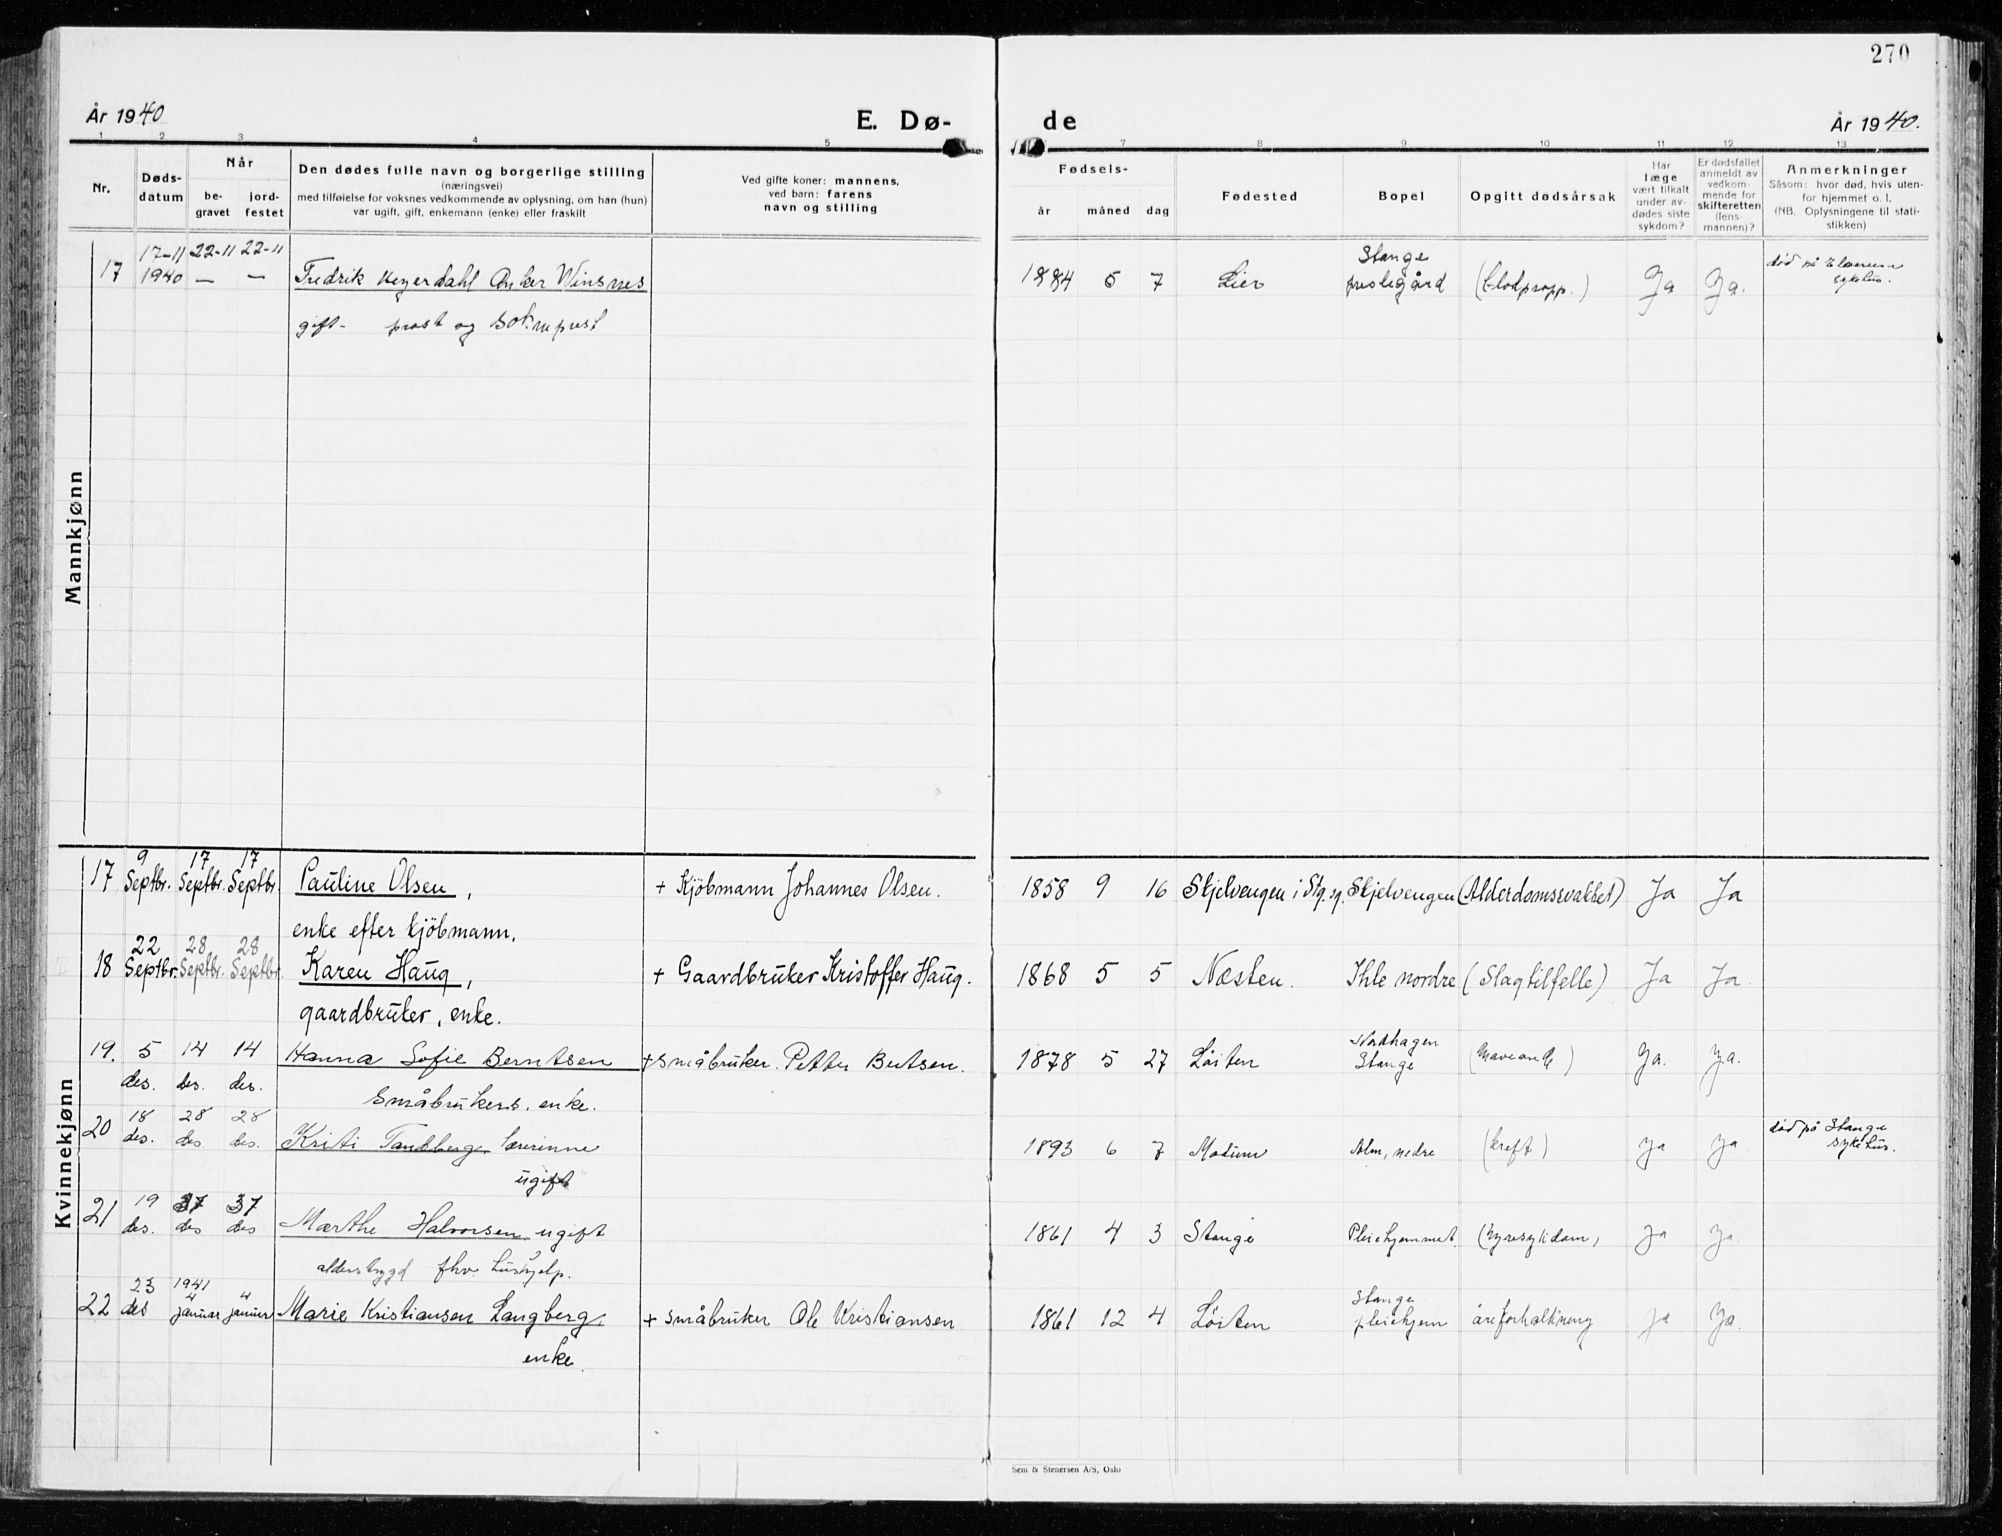 270
År 1940
E. Dø-
de
År 1940.
1 2 3 4 5 7 8 9 10 11 12 13
Nr.
Døds-
datum
Når
be-
gravet
jord-
festet
Den dødes fulle navn og borgerlige stilling
(næringsvei)
med tilføielse for voksnes vedkommende av oplysning, om han (hun)
var ugift, gift, enkemann (enke) eller fraskilt
Ved gifte koner: mannens,
ved barn: farens
navn og stilling
Fødsels-
år måned dag
Fødested
Bopel
Opgitt dødsårsak
Har
læge
vært tilkalt
under av-
dødes siste
sykdom?
Er dødsfallet
anmeldt av
vedkom-
mende for
skifteretten
(lens-
mannen)?
Anmerkninger
Såsom: hvor død, hvis uten-
for hjemmet o. l.
(NB. Oplysningene til stati-
stikken)
Mannkjønn
17-11 22-11 22-11 Stange død på
17 1940 — — Fredrik Heyerdahl Anker Winsnes 1884 5 7 Lier prestegård (blodpropp.) Ja Ja. sykehus.
gift- prost og sokneprest
Kvinnekjønn
9 17 17
17 Septbr. Septbr. Septbr Pauline Olsen, + Kjöbmann Johannes Olsen. 1858 9 16 Skjelvengen i Stg. sg. Skjelvengen (Alderdomssvakhet) Ja Ja
enke efter kjöbmann.
22 28 28
18 Septbr. Septbr. Septbr. Karen Haug, + Gaardbruker Kristoffer Haug. 1868 5 5 Næsten. Ihle nordre (Slagtilfelle) Ja Ja.
gaardbruker, enke.
Nordhagen
19. 5 14 14 Hanna Sofie Berntsen + småbruker. Petter Berntsen. 1878 5 27 Löiten Stange Ja. Ja.
des. des. des. Småbrukers. enke.
18 28 28 død på Stange
20 des. des des. Kristi Tandberg, lærerinne 1893 6 7 Modum Alm, nedre (kreft) Ja Ja sykehus.
ugift
19 37 37
21 des. des des Marthe Halvorsen ugift 1861 4 3 Stange Pleiehjemmet. (nyresykdom, Ja Ja.
alderstrygd fhv. hushjelp.
23 1941
4 4 Stange
22 des januar januar Marie Kristiansen Langberg, + småbruker Ole Kristiansen 1861 12 4 Löiten pleiehjem åreforkalkning Ja Ja.
enke.
Sem & Stenersen A/S, Oslo